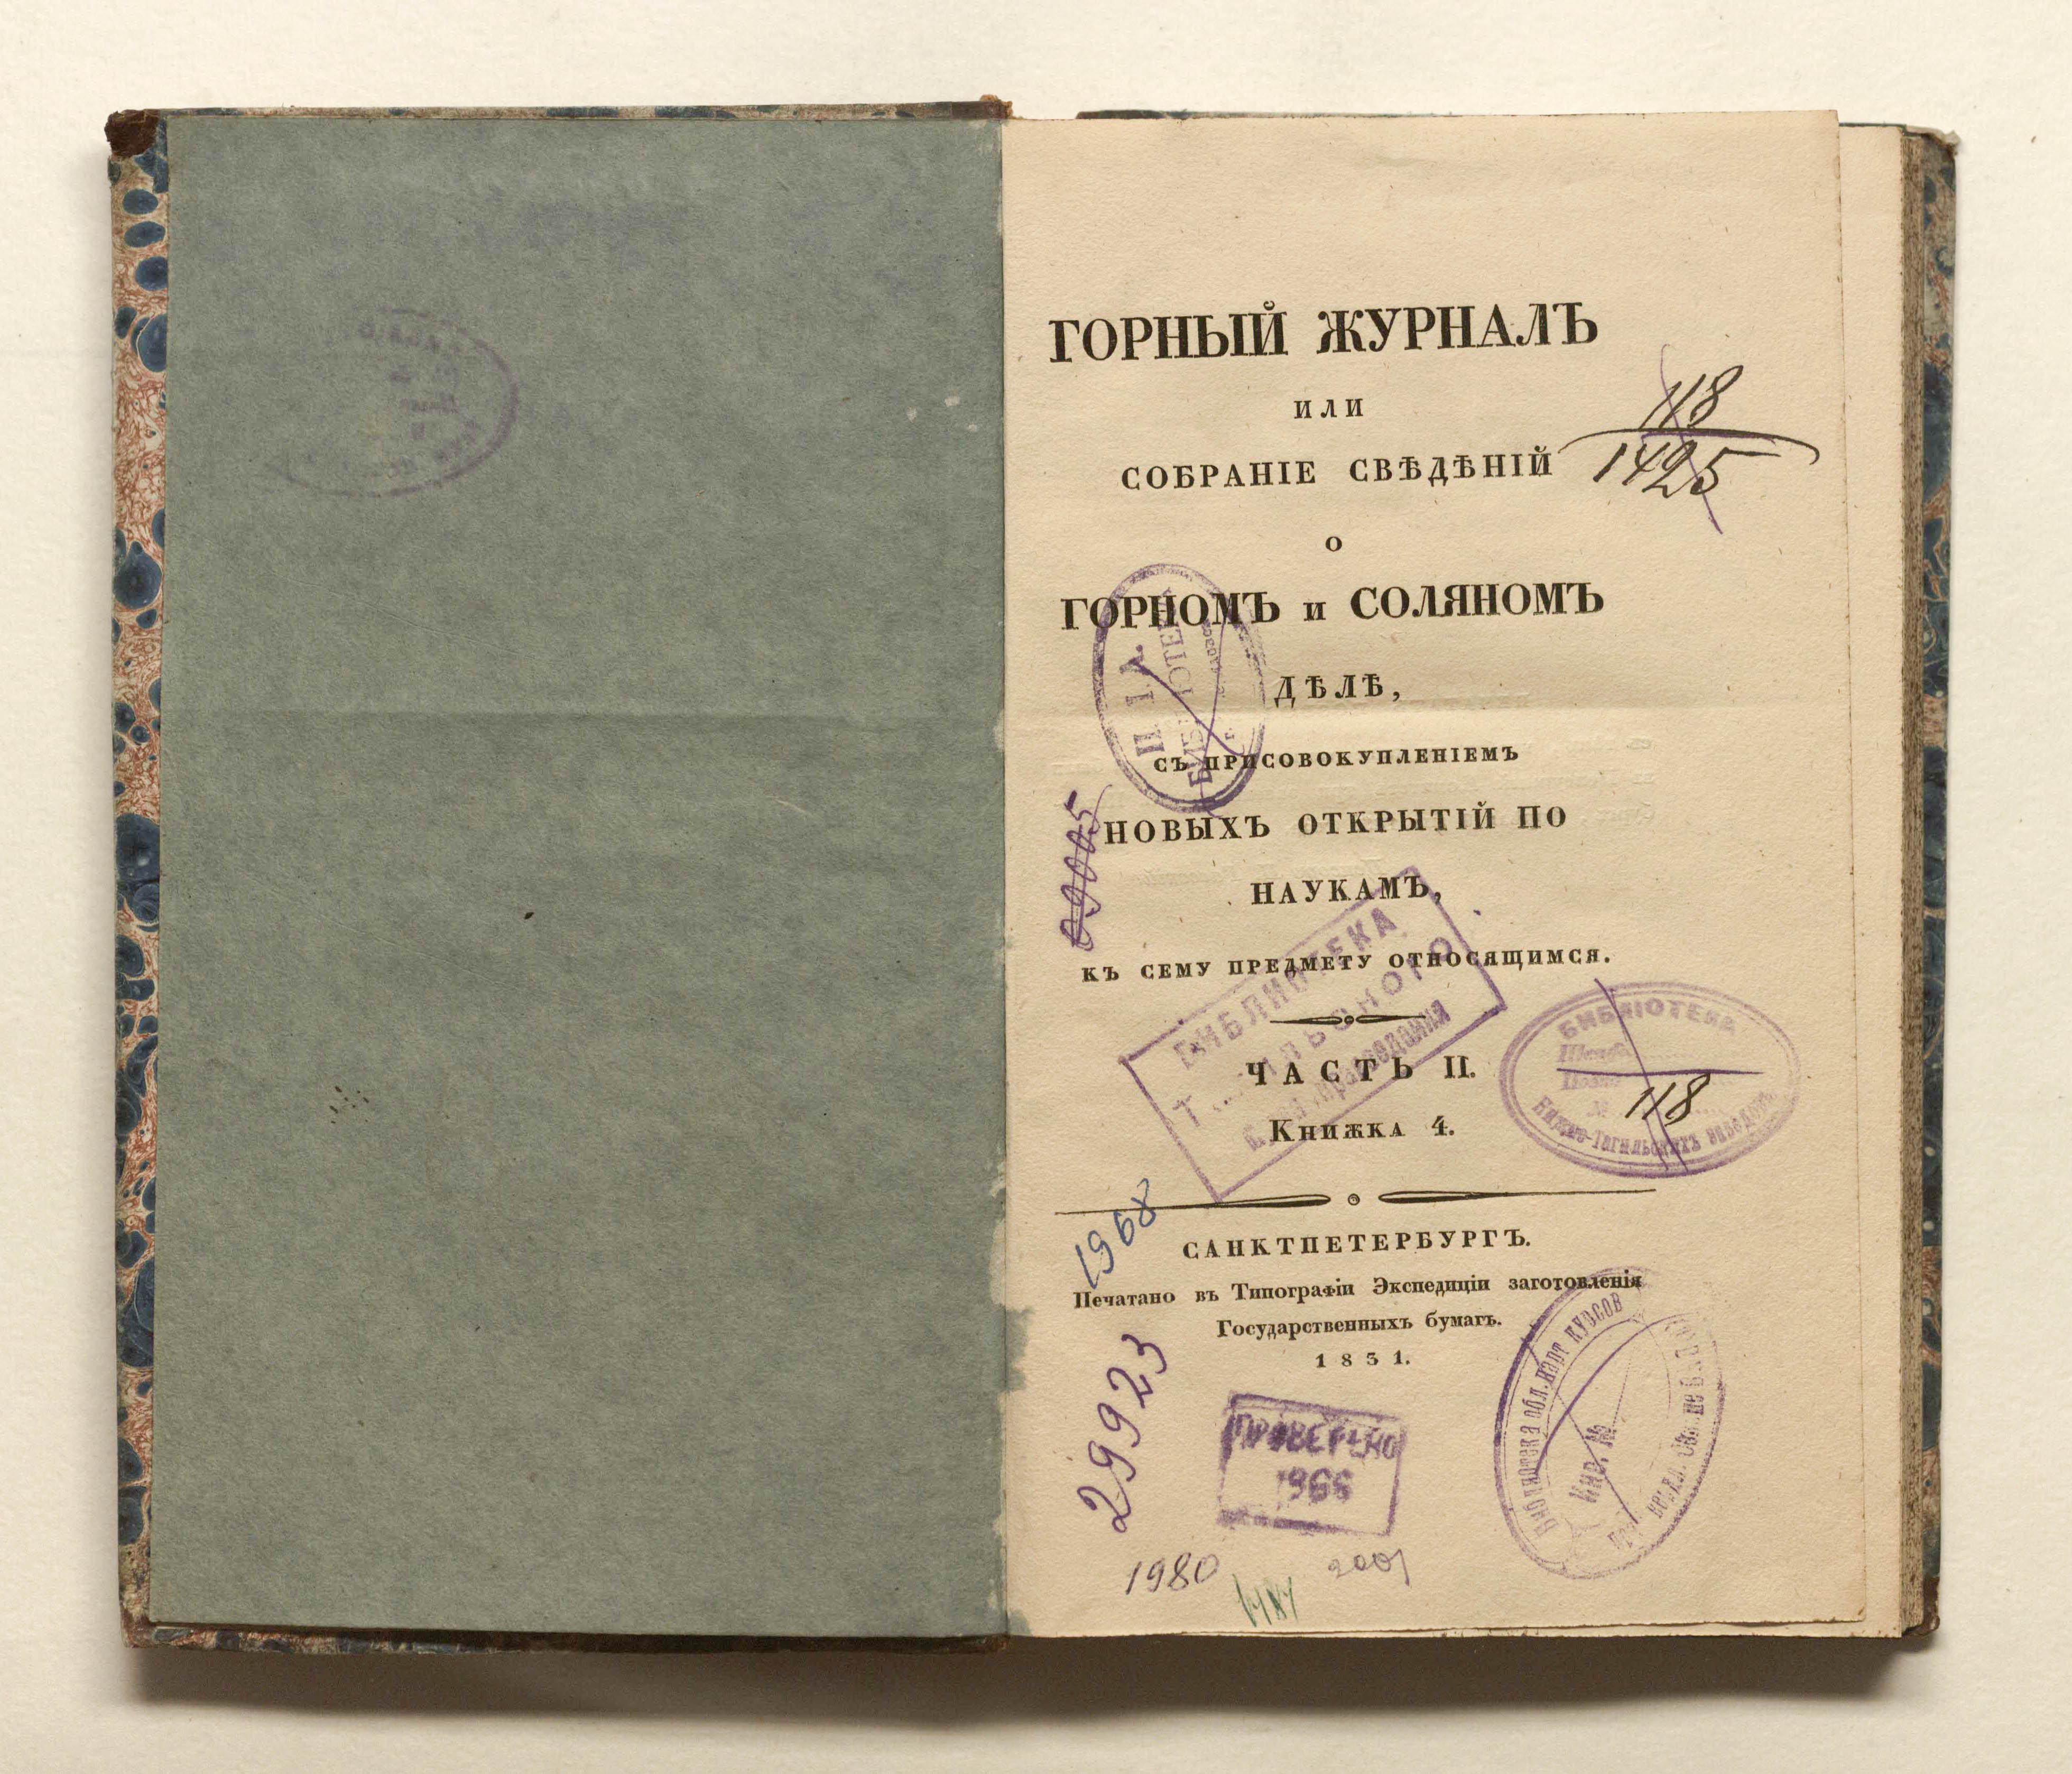 ГОРНЫЙ ЖУРНАЛЪ
ИЛИ
118
СОБРАНІЕ СВѢДѢНІЙ
1425
О
ГОРНОМЪ и СОЛЯНОМЪ
ДѢЛѢ,
СЪ ПРИСОВОКУПЛЕНІЕМЪ
09005
НОВЫХЪ ОТКРЫТІЙ ПО
НАУКАМЪ,
КЪ СЕМУ ПРЕДМЕТУ ОТНОСЯЩИМСЯ.
БИБЛИОТЕКА
краеведения
ЧАСТЬ II.
Книжка 4.
БИБЛІОТЕКА
№ 118
Нижне-Тагильскихъ заводовъ
1968
САНКТПЕТЕРБУРГЪ.
Печатано въ Типографіи Экспедиціи заготовленія
Государственныхъ бумагъ.
1831.
29923
ПРОВЕРЕНО
1966
Библиотека обл. парт курсов
Инв. №
1980
2001